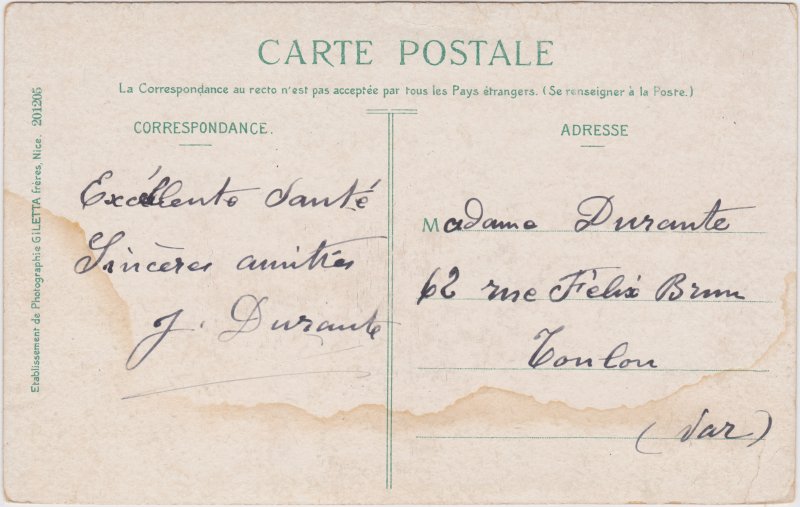 CARTE POSTALE
La Correspondance au recto n'est pas acceptée par tous les Pays étrangers. (Se renseigner à la Poste.)
CORRESPONDANCE.
Excéllente Santé
Sincères amitiés
J. Durante
ADRESSE
Madame Durante
62 rue Félix Brun
Toulon
(Var)
Etablissement de Photographie GILETTA frères, Nice. 201205